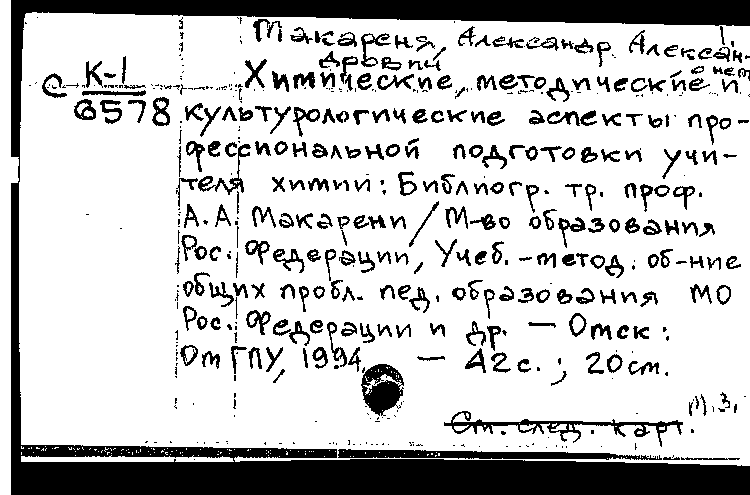 1.
Макареня, Александр Алексан-
дрович
о нем
С К-1
6578
Химические, методические и
культурологические аспекты про-
фессиональной подготовки учи-
теля химии: Библиогр. тр. проф.
А.А. Макарени / М-во образования
Рос. Федерации, Учеб.-метод. об-ние
общих пробл. пед. образования МО
Рос. Федерации и др. — Омск:
ОмГПУ, 1994. — 42 с.; 20 см.
См. след. карт.